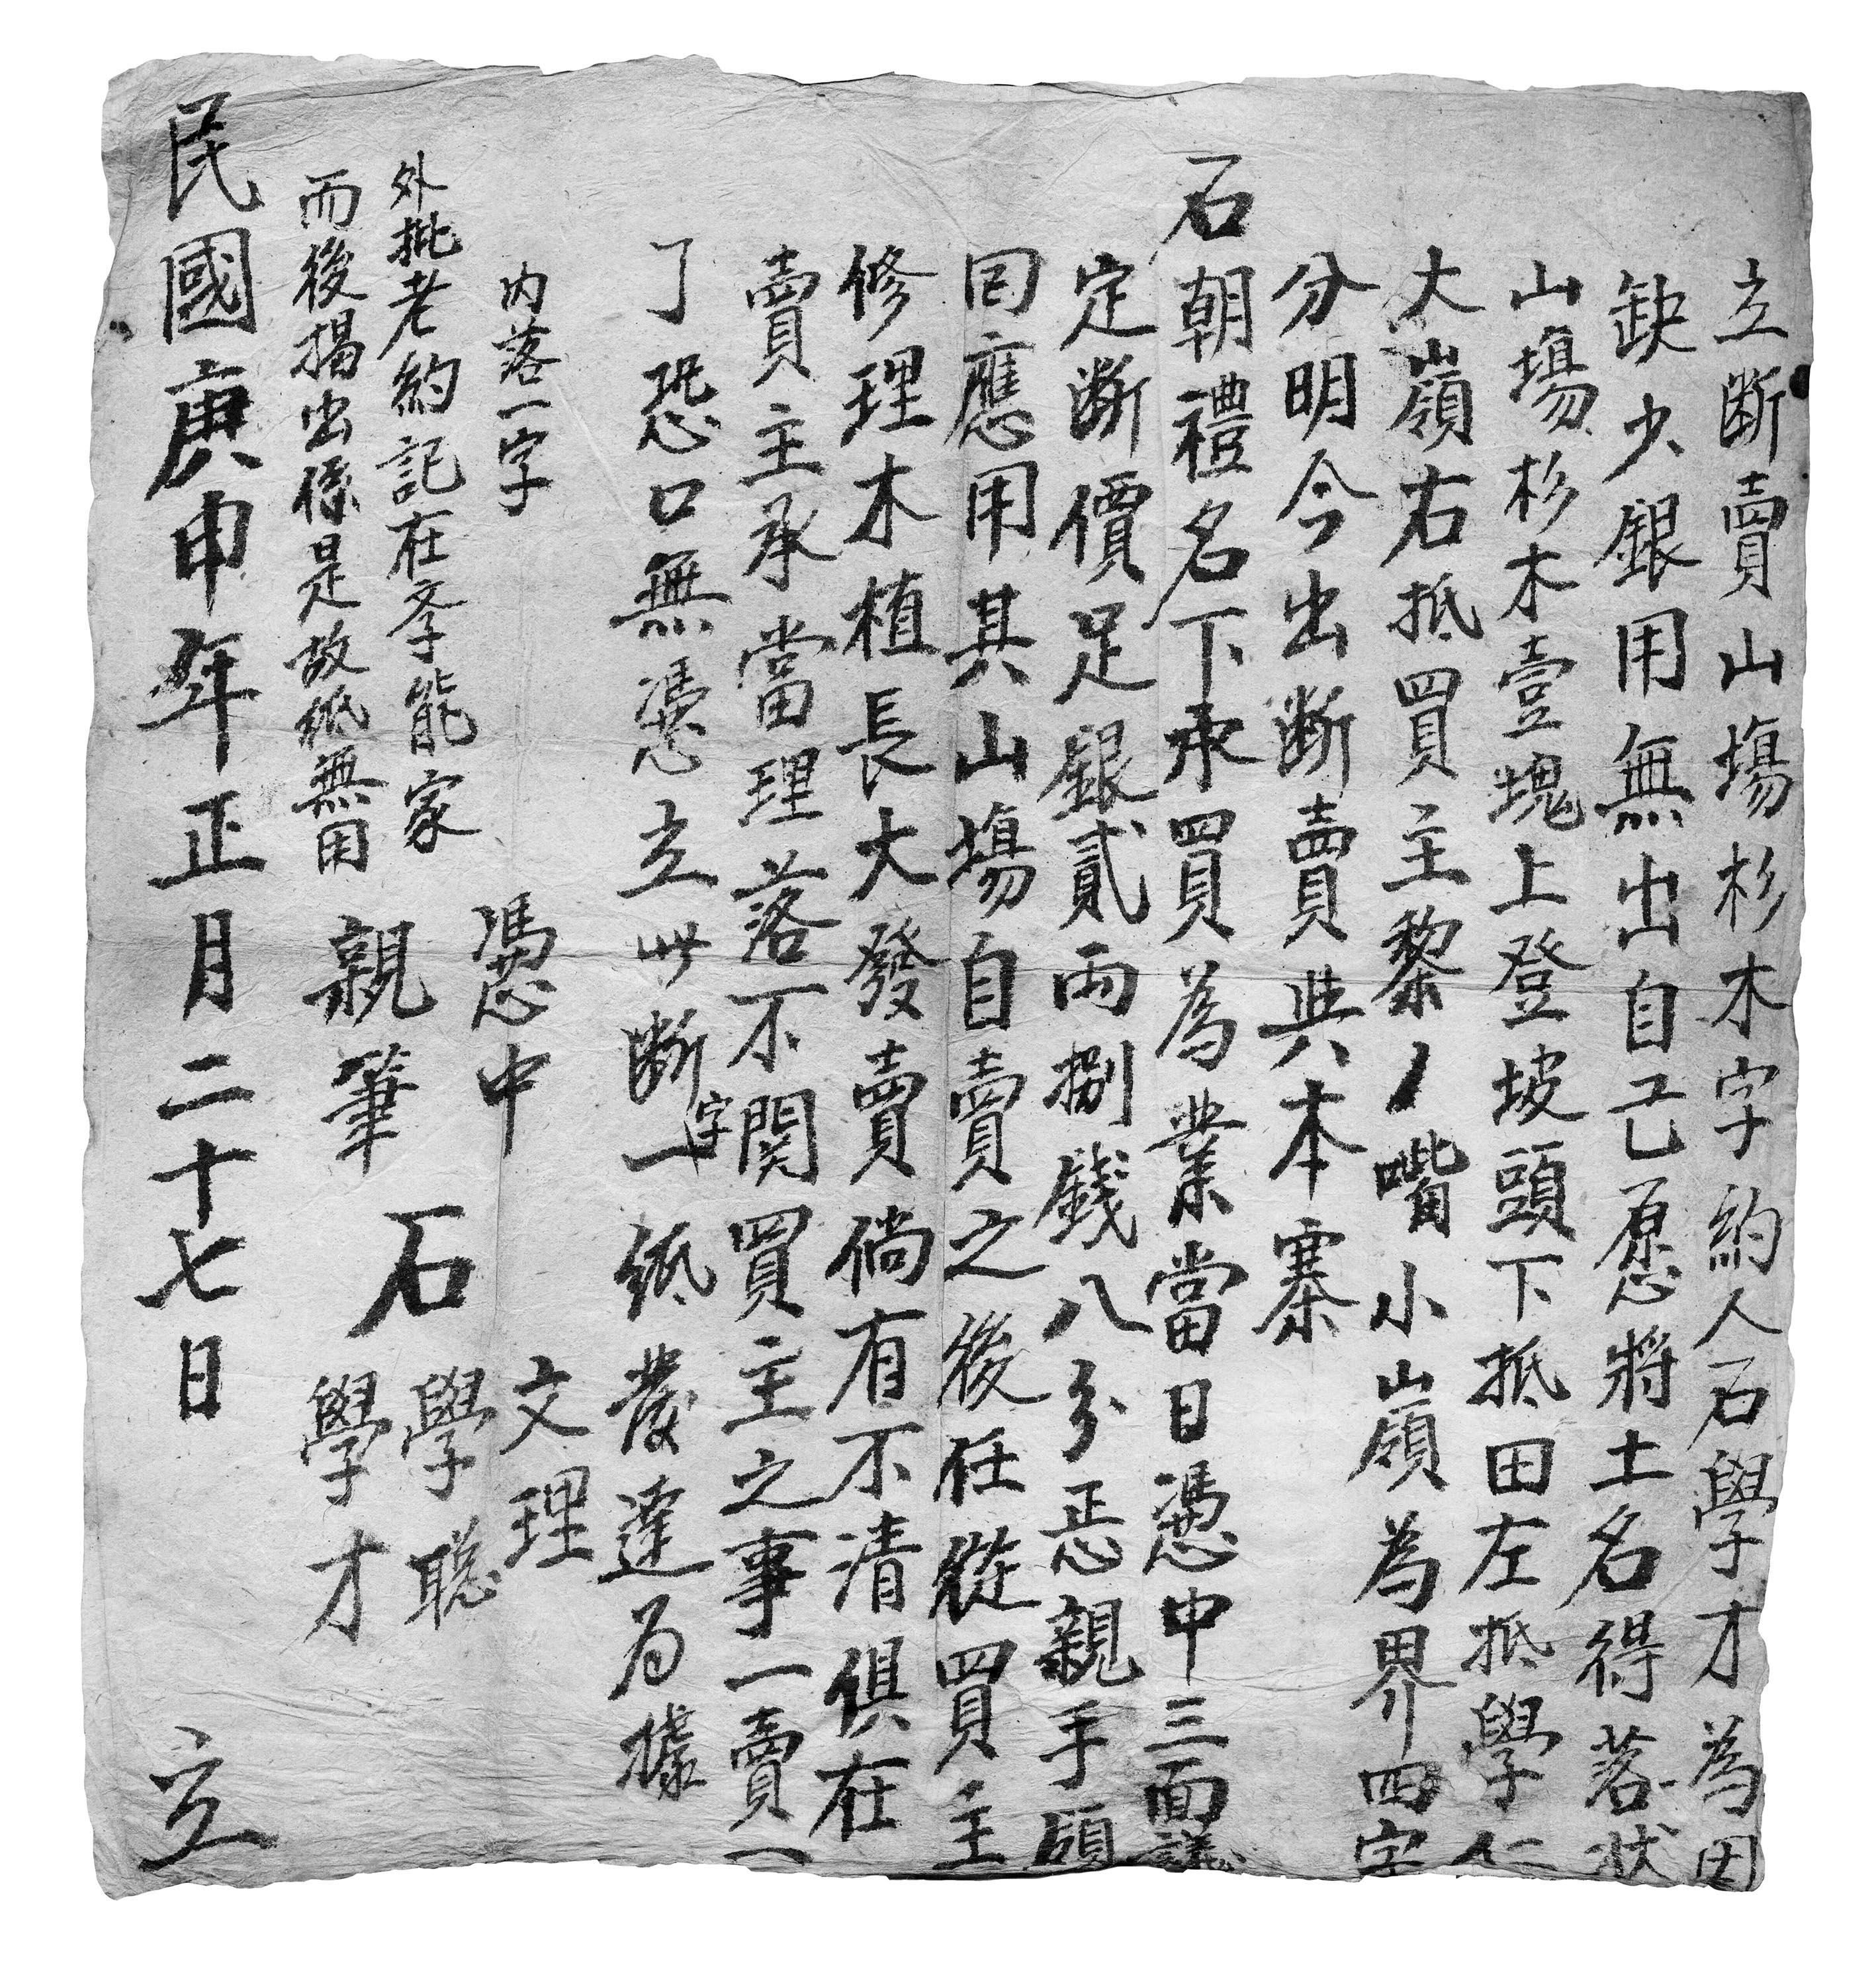 立斷賣山塲杉木字約人石學才為因
缺少銀用無出自己愿將土名得落狀
山塲杉木壹塊上登坡頭下抵田左抵學仁
大嶺右抵買主黎嘴小嶺為界四字
分明今出斷賣典本寨
石朝禮名下承買為業當日憑中三面議
定斷價足銀貳両捌錢八分恁親手領
囘應用其山塲自賣之後任從買主
修理木植長大發賣倘有不清俱在
賣主承當理落不関買主之事一賣一
了恐口無憑立此斷字一紙發達為據
内落一字
外批老約記在文孚能家
而後揚出係是故紙無用
憑中 文理
石 學聡
親筆 學才
民國庚申年正月二十七日 立